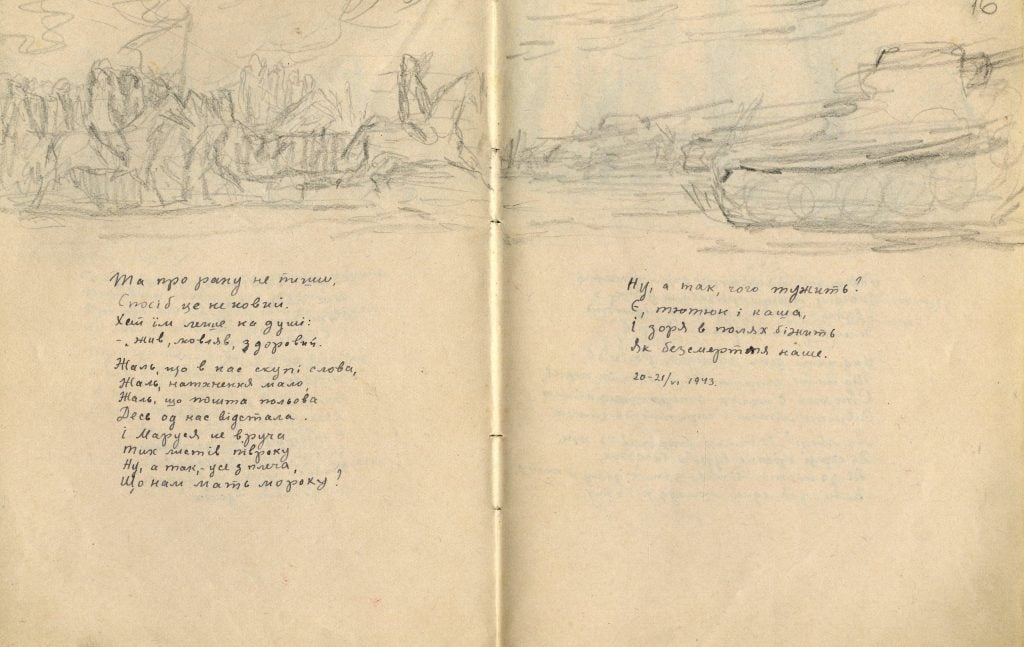 Та про рану не пиши,
Спосіб це не новий.
Хай їм легше на душі:
-, жив, мовляв, здоровий.
Жаль, що в нас скупі слова,
Жаль, натхнення мало,
Жаль, що пошта польова
Десь од нас відстала.
І Маруся не вруча
тих листів півроку
Ну, а так, - усе з плеча,
Що нам мать мороку?
16
Ну, а так, чого тужить?
Є, тютюн і каша,
І зоря в полях біжить
Як безсмертття наше.
20-21/VI 1943.